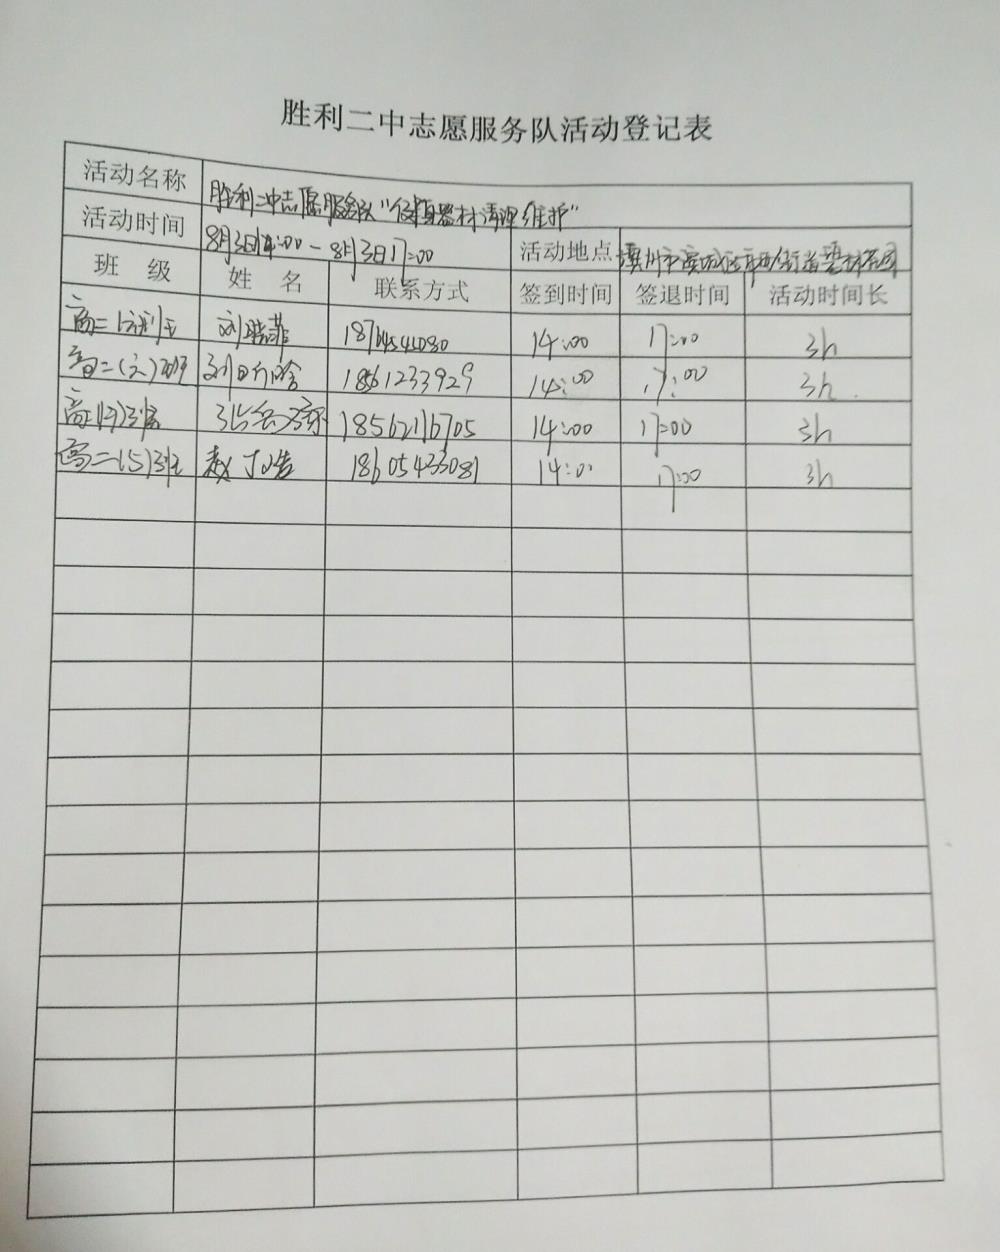 胜利二中志愿服务队活动登记表
活动名称 胜利二中志愿服务队"健身器材清理维护"
活动时间 8月3日14:00-8月3日17:00 活动地点
班 级 姓 名 联系方式 签到时间 签退时间 活动时间长
高二 刘晓菲 14:00 17:00 3h
高二(六)班 刘 18561233929 14:00 17:00 3h
高二 班 张 18562116705 14:00 17:00 3h
高二(5)班 18605433081 14:00 17:00 3h